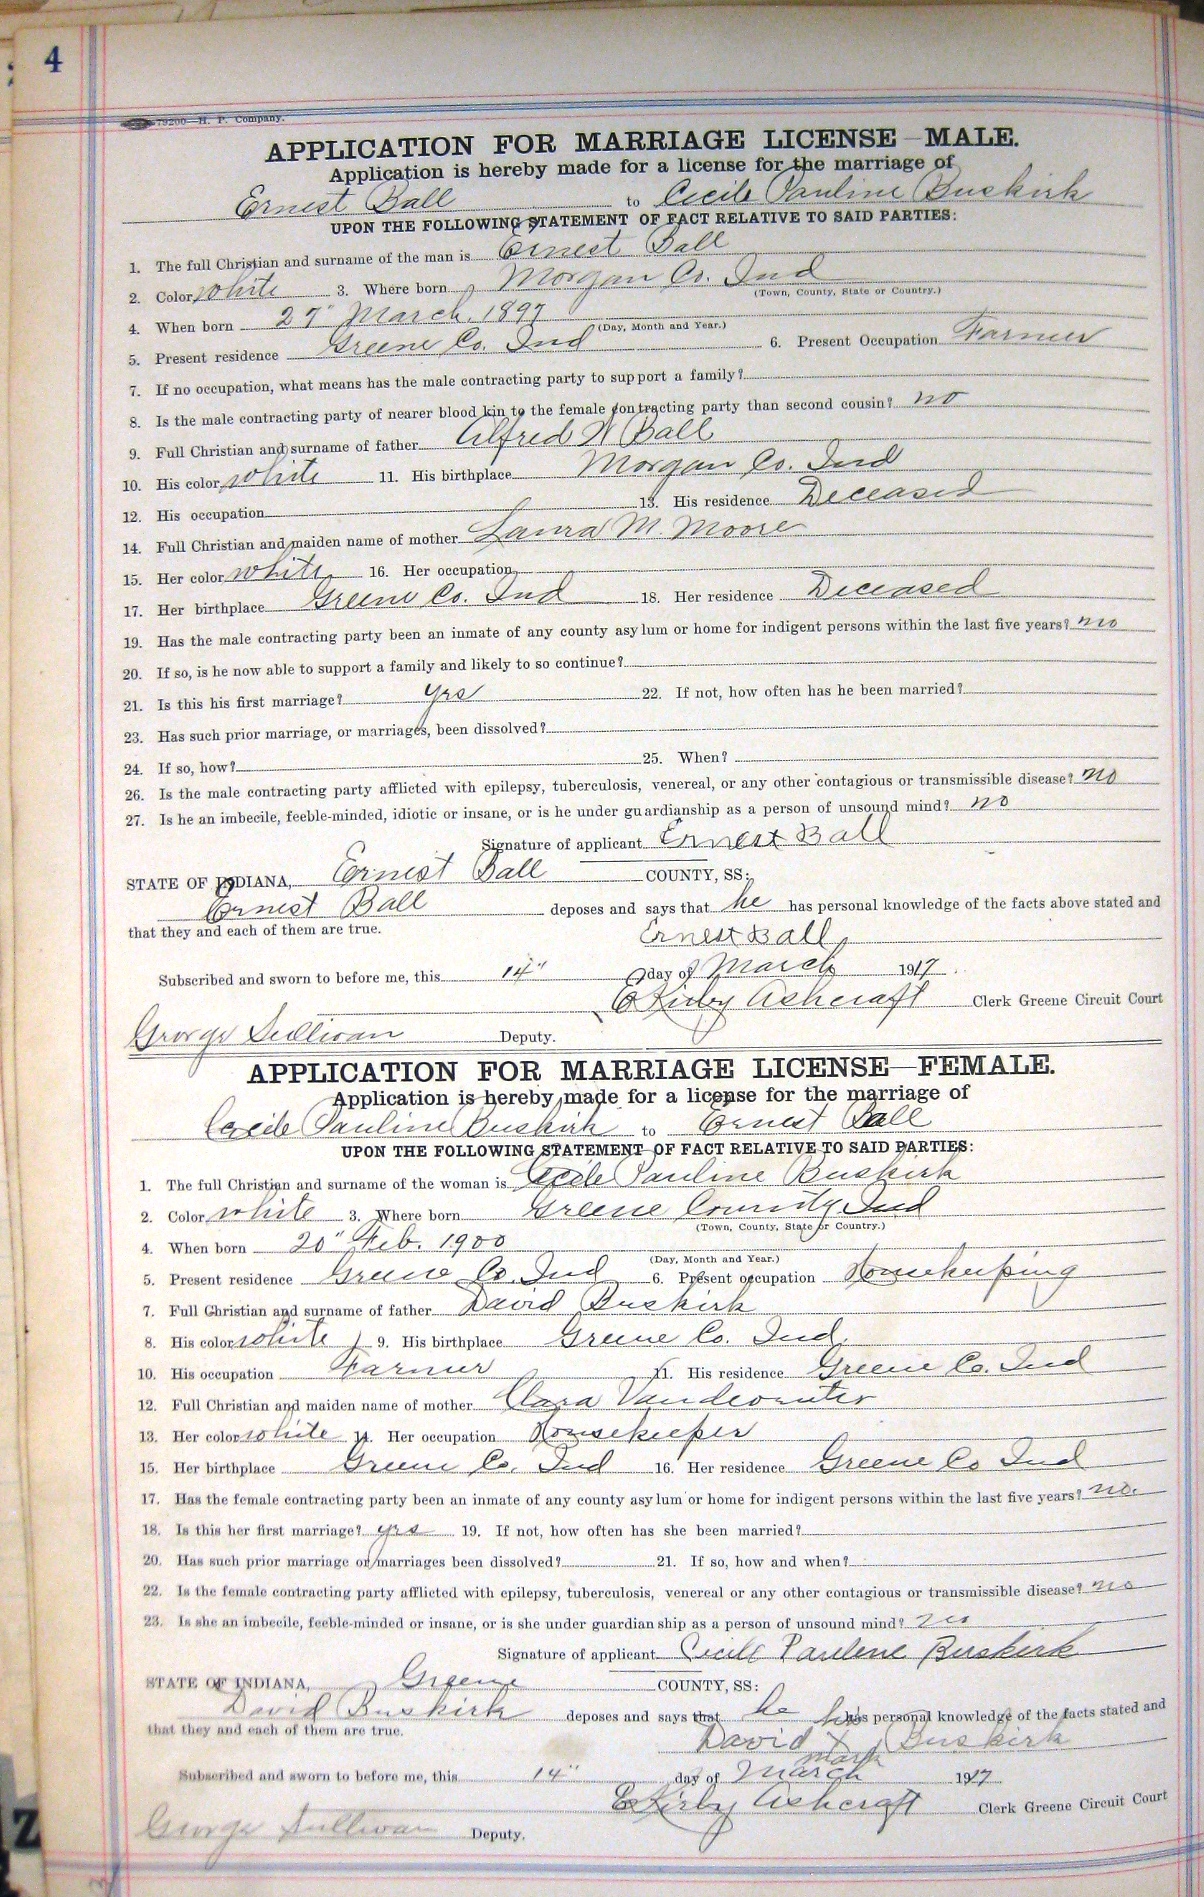 4
79200—H. P. Company.
APPLICATION FOR MARRIAGE LICENSE—MALE.
Application is hereby made for a license for the marriage of
Ernest Ball to Cecile Pauline Buskirk
UPON THE FOLLOWING STATEMENT OF FACT RELATIVE TO SAID PARTIES:
1. The full Christian and surname of the man is Ernest Ball
2. Color white 3. Where born Morgan Co. Ind
(Town, County, State or Country.)
4. When born 27" March 1897
(Day, Month and Year.)
5. Present residence Greene Co. Ind 6. Present Occupation Farmer
7. If no occupation, what means has the male contracting party to support a family?
8. Is the male contracting party of nearer blood kin to the female contracting party than second cousin? no
9. Full Christian and surname of father Alfred W Ball
10. His color white 11. His birthplace Morgan Co. Ind
12. His occupation 13. His residence Deceased
14. Full Christian and maiden name of mother Laura M. Moore
15. Her color white 16. Her occupation
17. Her birthplace Greene Co. Ind 18. Her residence Deceased
19. Has the male contracting party been an inmate of any county asylum or home for indigent persons within the last five years? no
20. If so, is he now able to support a family and likely to so continue?
21. Is this his first marriage? yes 22. If not, how often has he been married?
23. Has such prior marriage, or marriages, been dissolved?
24. If so, how? 25. When?
26. Is the male contracting party afflicted with epilepsy, tuberculosis, venereal, or any other contagious or transmissible disease? no
27. Is he an imbecile, feeble-minded, idiotic or insane, or is he under guardianship as a person of unsound mind? no
Signature of applicant Ernest Ball
STATE OF INDIANA, Ernest Ball COUNTY, SS:
Ernest Ball deposes and says that he has personal knowledge of the facts above stated and
that they and each of them are true.
Ernest Ball
Subscribed and sworn to before me, this 14" day of March 1917
E Kirby Ashcraft Clerk Greene Circuit Court
George Sullivan Deputy.
APPLICATION FOR MARRIAGE LICENSE—FEMALE.
Application is hereby made for a license for the marriage of
Cecile Pauline Buskirk to Ernest Ball
UPON THE FOLLOWING STATEMENT OF FACT RELATIVE TO SAID PARTIES:
1. The full Christian and surname of the woman is Cecile Pauline Buskirk
2. Color white 3. Where born Greene County Ind
(Town, County, State or Country.)
4. When born 20" Feb. 1900
(Day, Month and Year.)
5. Present residence Greene Co. Ind 6. Present occupation Housekeeping
7. Full Christian and surname of father David Buskirk
8. His color white 9. His birthplace Greene Co. Ind
10. His occupation Farmer 11. His residence Greene Co. Ind
12. Full Christian and maiden name of mother Clara Vandeventer
13. Her color white 14. Her occupation Housekeeper
15. Her birthplace Greene Co. Ind 16. Her residence Greene Co Ind
17. Has the female contracting party been an inmate of any county asylum or home for indigent persons within the last five years? no.
18. Is this her first marriage? yes 19. If not, how often has she been married?
20. Has such prior marriage or marriages been dissolved? 21. If so, how and when?
22. Is the female contracting party afflicted with epilepsy, tuberculosis, venereal or any other contagious or transmissible disease? no
23. Is she an imbecile, feeble-minded or insane, or is she under guardianship as a person of unsound mind? no
Signature of applicant Cecile Paulene Buskirk
STATE OF INDIANA, Greene COUNTY, SS:
David Buskirk deposes and says that he has personal knowledge of the facts stated and
that they and each of them are true.
his
David X Buskirk
mark
Subscribed and sworn to before me, this 14" day of March 1917
E Kirby Ashcraft Clerk Greene Circuit Court
George Sullivan Deputy.